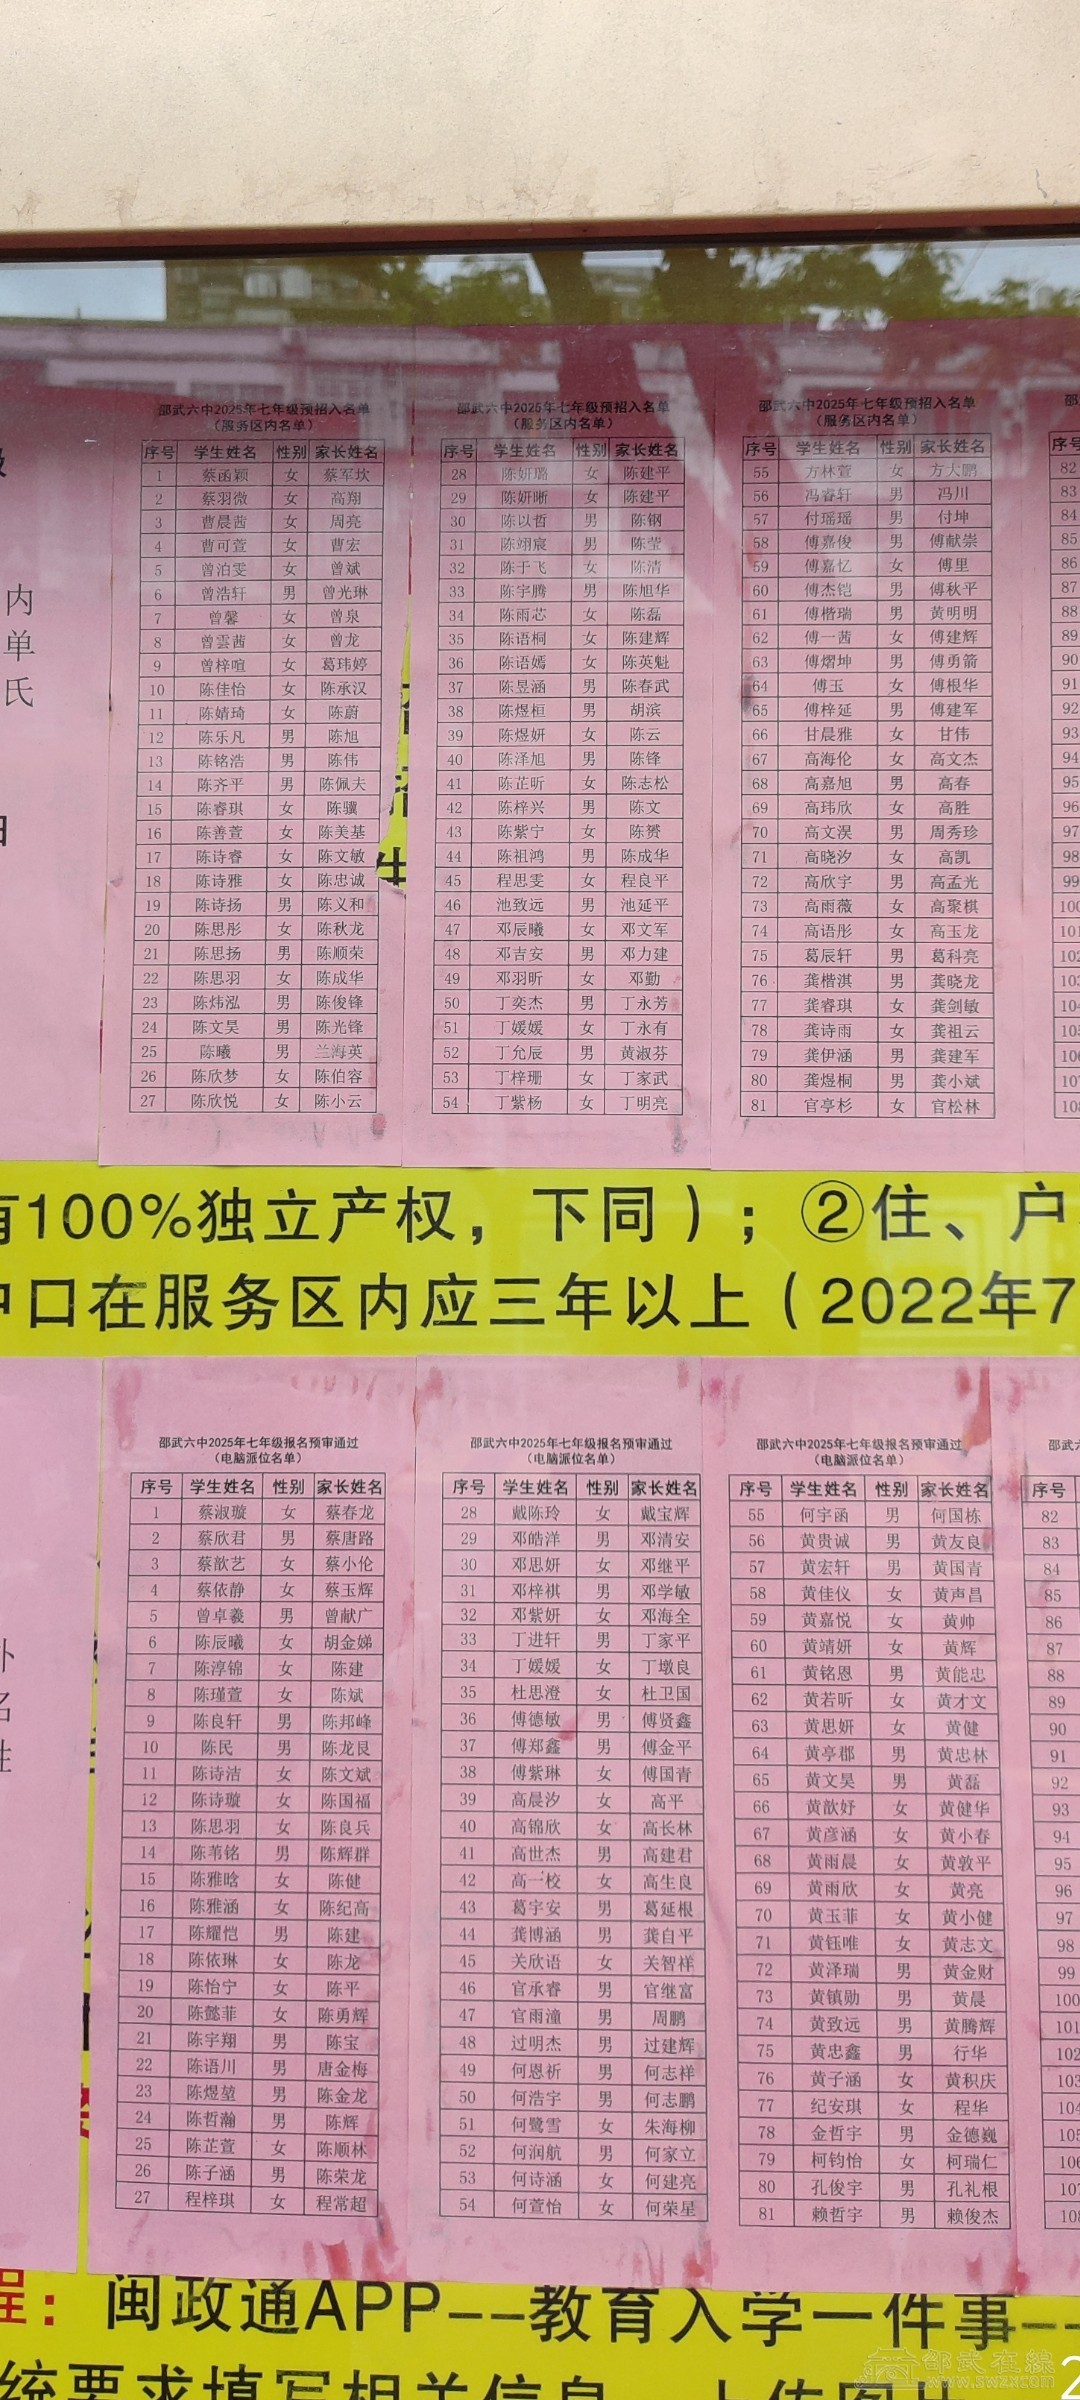 邵武六中2025年七年级预招入名单
（服务区内名单）
序号 学生姓名 性别 家长姓名
1 蔡函颖 女 蔡军坎
2 蔡羽微 女 高翔
3 曹晨茜 女 周亮
4 曹可萱 女 曹宏
5 曾泊雯 女 曾斌
6 曾浩轩 男 曾光琳
7 曾馨 女 曾泉
8 曾雲茜 女 曾龙
9 曾梓喧 女 葛玮婷
10 陈佳怡 女 陈承汉
11 陈婧琦 女 陈蔚
12 陈乐凡 男 陈旭
13 陈铭浩 男 陈伟
14 陈齐平 男 陈佩夫
15 陈睿琪 女 陈骥
16 陈善萱 女 陈美基
17 陈诗睿 女 陈文敏
18 陈诗雅 女 陈忠诚
19 陈诗扬 男 陈义和
20 陈思彤 女 陈秋龙
21 陈思扬 男 陈顺荣
22 陈思羽 女 陈成华
23 陈炜泓 男 陈俊锋
24 陈文昊 男 陈光锋
25 陈曦 男 兰海英
26 陈欣梦 女 陈伯容
27 陈欣悦 女 陈小云
邵武六中2025年七年级预招入名单
（服务区内名单）
序号 学生姓名 性别 家长姓名
28 陈妍璐 女 陈建平
29 陈妍晰 女 陈建平
30 陈以哲 男 陈钢
31 陈翊宸 男 陈莹
32 陈于飞 女 陈清
33 陈宇腾 男 陈旭华
34 陈雨芯 女 陈磊
35 陈语桐 女 陈建辉
36 陈语嫣 女 陈英魁
37 陈昱涵 男 陈春武
38 陈煜桓 男 胡滨
39 陈煜妍 女 陈云
40 陈泽旭 男 陈锋
41 陈芷昕 女 陈志松
42 陈梓兴 男 陈文
43 陈紫宁 女 陈赟
44 陈祖鸿 男 陈成华
45 程思雯 女 程良平
46 池致远 男 池延平
47 邓辰曦 女 邓文军
48 邓吉安 男 邓力建
49 邓羽昕 女 邓勤
50 丁奕杰 男 丁永芳
51 丁媛媛 女 丁永有
52 丁允辰 男 黄淑芬
53 丁梓珊 女 丁家武
54 丁紫杨 女 丁明亮
邵武六中2025年七年级预招入名单
（服务区内名单）
序号 学生姓名 性别 家长姓名
55 方林萱 女 方大鹏
56 冯睿轩 男 冯川
57 付瑶瑶 男 付坤
58 傅嘉俊 男 傅献崇
59 傅嘉忆 女 傅里
60 傅杰铠 男 傅秋平
61 傅楷瑞 男 黄明明
62 傅一茜 女 傅建辉
63 傅熠坤 男 傅勇箭
64 傅玉 女 傅根华
65 傅梓延 男 傅建军
66 甘晨雅 女 甘伟
67 高海伦 女 高文杰
68 高嘉旭 男 高春
69 高玮欣 女 高胜
70 高文淏 男 周秀珍
71 高晓汐 女 高凯
72 高欣宇 男 高孟光
73 高雨薇 女 高聚棋
74 高语彤 女 高玉龙
75 葛辰轩 男 葛科亮
76 龚楷淇 男 龚晓龙
77 龚睿琪 女 龚剑敏
78 龚诗雨 女 龚祖云
79 龚伊涵 男 龚建军
80 龚煜桐 男 龚小斌
81 官亭杉 女 官松林
82
83
84
85
86
87
88
89
90
91
92
93
94
95
96
97
98
99
内
单
氏
有100%独立产权，下同）；②住、户
口在服务区内应三年以上（2022年7
邵武六中2025年七年级报名预审通过
（电脑派位名单）
序号 学生姓名 性别 家长姓名
1 蔡淑璇 女 蔡春龙
2 蔡欣君 男 蔡唐路
3 蔡歆艺 女 蔡小伦
4 蔡依静 女 蔡玉辉
5 曾卓羲 男 曾献广
6 陈辰曦 女 胡金娣
7 陈淳锦 女 陈建
8 陈瑾萱 女 陈斌
9 陈良轩 男 陈邦峰
10 陈民 男 陈龙艮
11 陈诗洁 女 陈文斌
12 陈诗璇 女 陈国福
13 陈思羽 女 陈良兵
14 陈苇铭 男 陈辉群
15 陈雅晗 女 陈健
16 陈雅涵 女 陈纪高
17 陈耀恺 男 陈建
18 陈依琳 女 陈龙
19 陈怡宁 女 陈平
20 陈懿菲 女 陈勇辉
21 陈宇翔 男 陈宝
22 陈语川 男 唐金梅
23 陈煜堃 男 陈金龙
24 陈哲瀚 男 陈辉
25 陈芷萱 女 陈顺林
26 陈子涵 男 陈荣龙
27 程梓琪 女 程常超
邵武六中2025年七年级报名预审通过
（电脑派位名单）
序号 学生姓名 性别 家长姓名
28 戴陈玲 女 戴宝辉
29 邓皓洋 男 邓清安
30 邓思妍 女 邓继平
31 邓梓祺 男 邓学敏
32 邓紫妍 女 邓海全
33 丁进轩 男 丁家平
34 丁媛媛 女 丁墩良
35 杜思澄 女 杜卫国
36 傅德敏 男 傅贤鑫
37 傅郑鑫 男 傅金平
38 傅紫琳 女 傅国青
39 高晨汐 女 高平
40 高锦欣 女 高长林
41 高世杰 男 高建君
42 高一校 女 高生良
43 葛宇安 男 葛延根
44 龚博涵 男 龚自平
45 关欣语 女 关智祥
46 官承睿 男 官继富
47 官雨潼 男 周鹏
48 过明杰 男 过建辉
49 何恩祈 男 何志祥
50 何浩宇 男 何志鹏
51 何鹭雪 女 朱海柳
52 何润航 男 何家立
53 何诗涵 女 何建亮
54 何萱怡 女 何荣星
邵武六中2025年七年级报名预审通过
（电脑派位名单）
序号 学生姓名 性别 家长姓名
55 何宇函 男 何国栋
56 黄贵诚 男 黄友良
57 黄宏轩 男 黄国青
58 黄佳仪 女 黄声昌
59 黄嘉悦 女 黄帅
60 黄靖妍 女 黄辉
61 黄铭恩 男 黄能忠
62 黄若昕 女 黄才文
63 黄思妍 女 黄健
64 黄亭郡 男 黄忠林
65 黄文昊 男 黄磊
66 黄歆妤 女 黄健华
67 黄彦涵 女 黄小春
68 黄雨晨 女 黄敦平
69 黄雨欣 女 黄亮
70 黄玉菲 女 黄小健
71 黄钰唯 女 黄志文
72 黄泽瑞 男 黄金财
73 黄镇勋 男 黄晨
74 黄致远 男 黄腾辉
75 黄忠鑫 男 行华
76 黄子涵 女 黄积庆
77 纪安琪 女 程华
78 金哲宇 男 金德巍
79 柯钧怡 女 柯瑞仁
80 孔俊宇 男 孔礼根
81 赖哲宇 男 赖俊杰
序号
82
83
84
85
86
87
88
89
90
91
92
93
94
95
96
97
98
99
100
101
102
103
104
105
106
107
108
程：闽政通APP--教育入学一件事--
统要求填写相关信息，上传
邵武在線
www.swzx.com